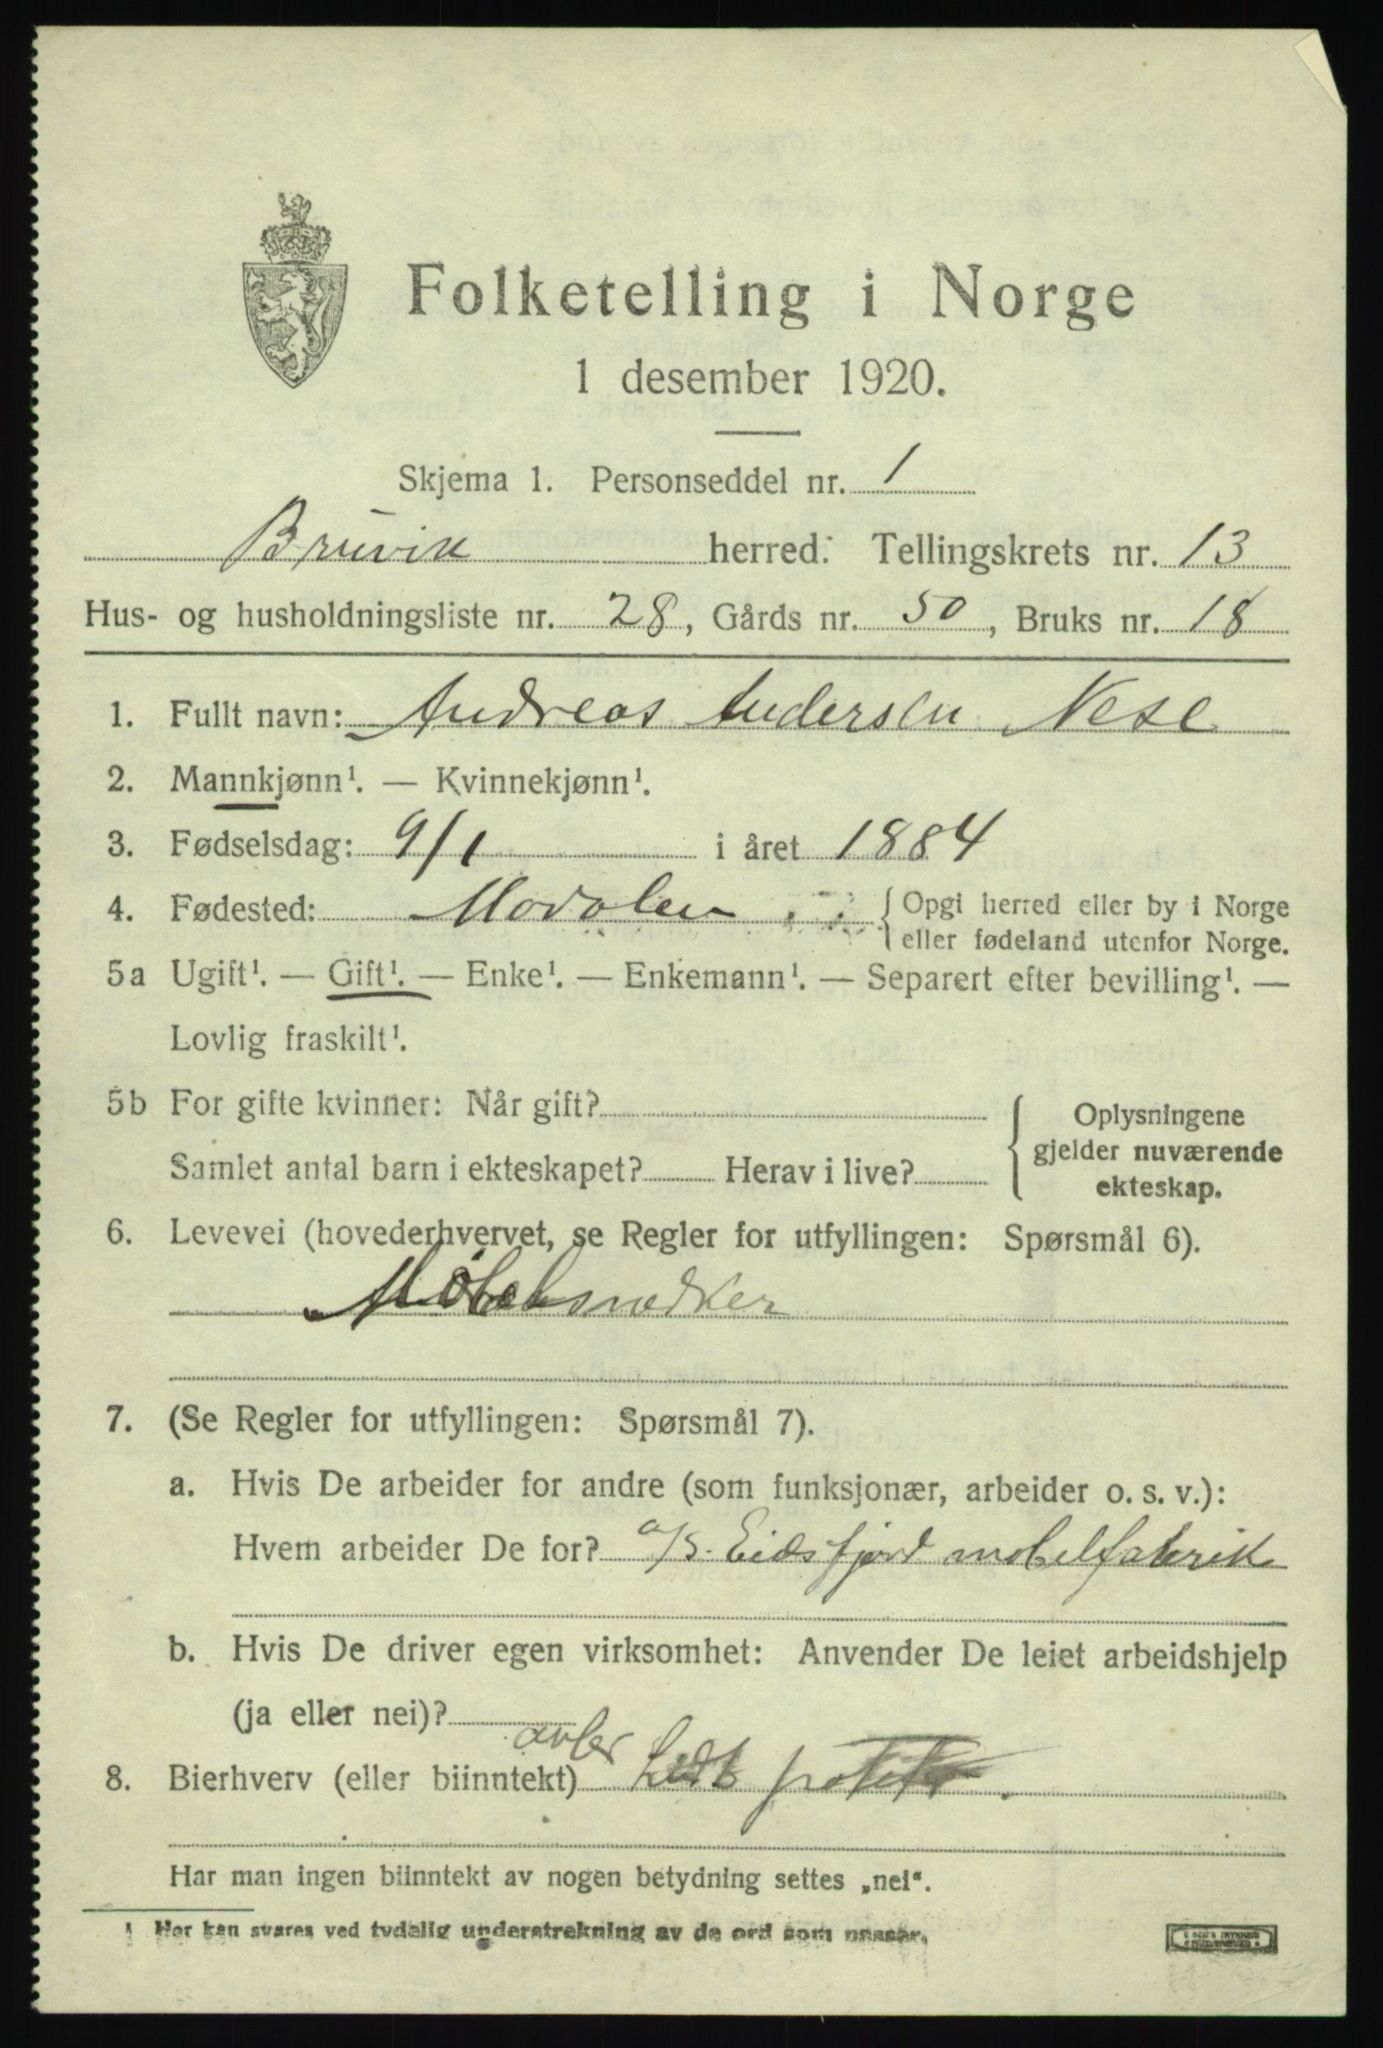 Folketelling i Norge
1 desember 1920.
Skjema 1. Personseddel nr. 1
Bruvik herred. Tellingskrets nr. 13
Hus- og husholdningsliste nr. 28, Gårds nr. 50, Bruks nr. 18
1. Fullt navn: Andreas Andersen Nese
2. Mannkjønn¹. — Kvinnekjønn¹.
3. Fødselsdag: 9/1 i året 1884
4. Fødested: Modalen { Opgi herred eller by i Norge
eller fødeland utenfor Norge.
5a Ugift¹. — Gift¹. — Enke¹. — Enkemann¹. — Separert efter bevilling¹. —
Lovlig fraskilt¹.
5b For gifte kvinner: Når gift?
Samlet antal barn i ekteskapet? Herav i live?
Oplysningene
gjelder nuværende
ekteskap.
6. Levevei (hovederhvervet, se Regler for utfyllingen: Spørsmål 6).
Møbelsnedker
7. (Se Regler for utfyllingen: Spørsmål 7).
a. Hvis De arbeider for andre (som funksjonær, arbeider o. s. v.):
Hvem arbeider De for? a/s. Eidsfjord mobelfabrik
b. Hvis De driver egen virksomhet: Anvender De leiet arbeidshjelp
(ja eller nei)?
avler
8. Bierhverv (eller biinntekt) litt
Har man ingen biinntekt av nogen betydning settes „nei“.
¹ Her kan svares ved tydelig understrekning av de ord som passer.